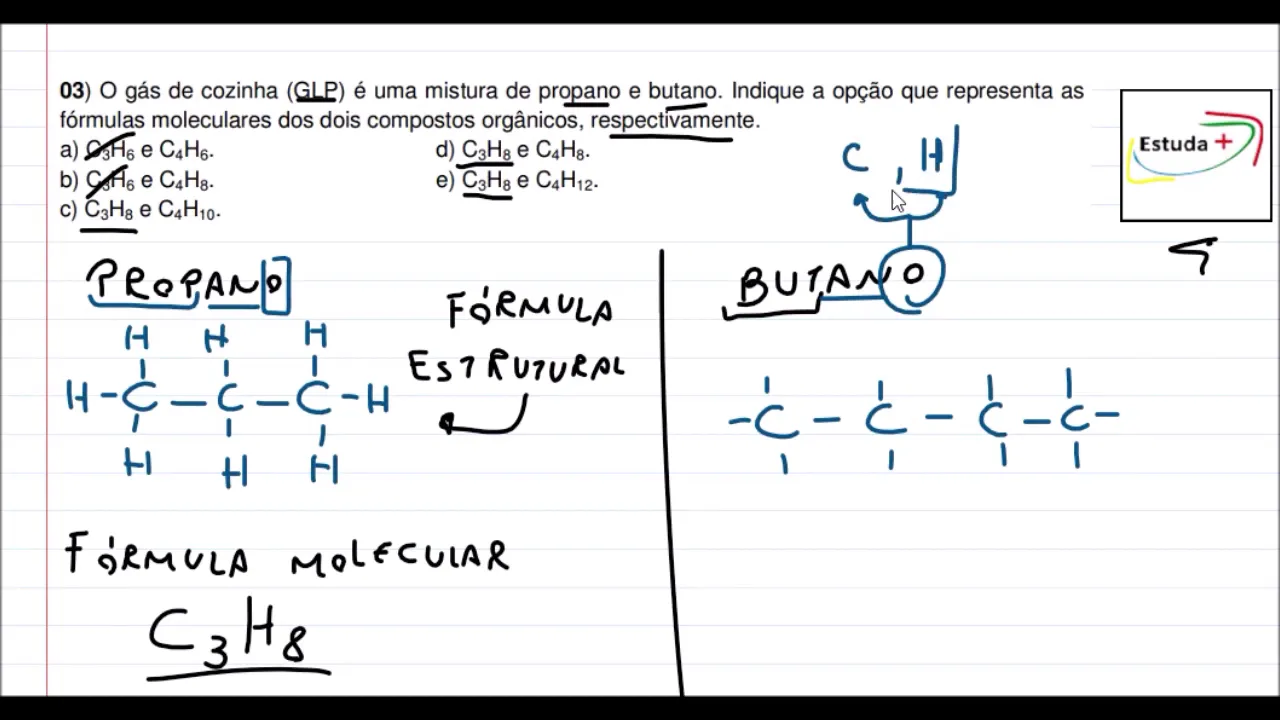 03) O gás de cozinha (GLP) é uma mistura de propano e butano. Indique a opção que representa as
fórmulas moleculares dos dois compostos orgânicos, respectivamente.
a) C₃H₆ e C₄H₆.
b) C₃H₆ e C₄H₈.
c) C₃H₈ e C₄H₁₀.
d) C₃H₈ e C₄H₈.
e) C₃H₈ e C₄H₁₂.
C , H
Estuda +
PROPANO
H H H
H - C - C - C - H
H H H
FÓRMULA
ESTRUTURAL
BUTANO
- C - C - C - C -
FÓRMULA MOLECULAR
C₃H₈